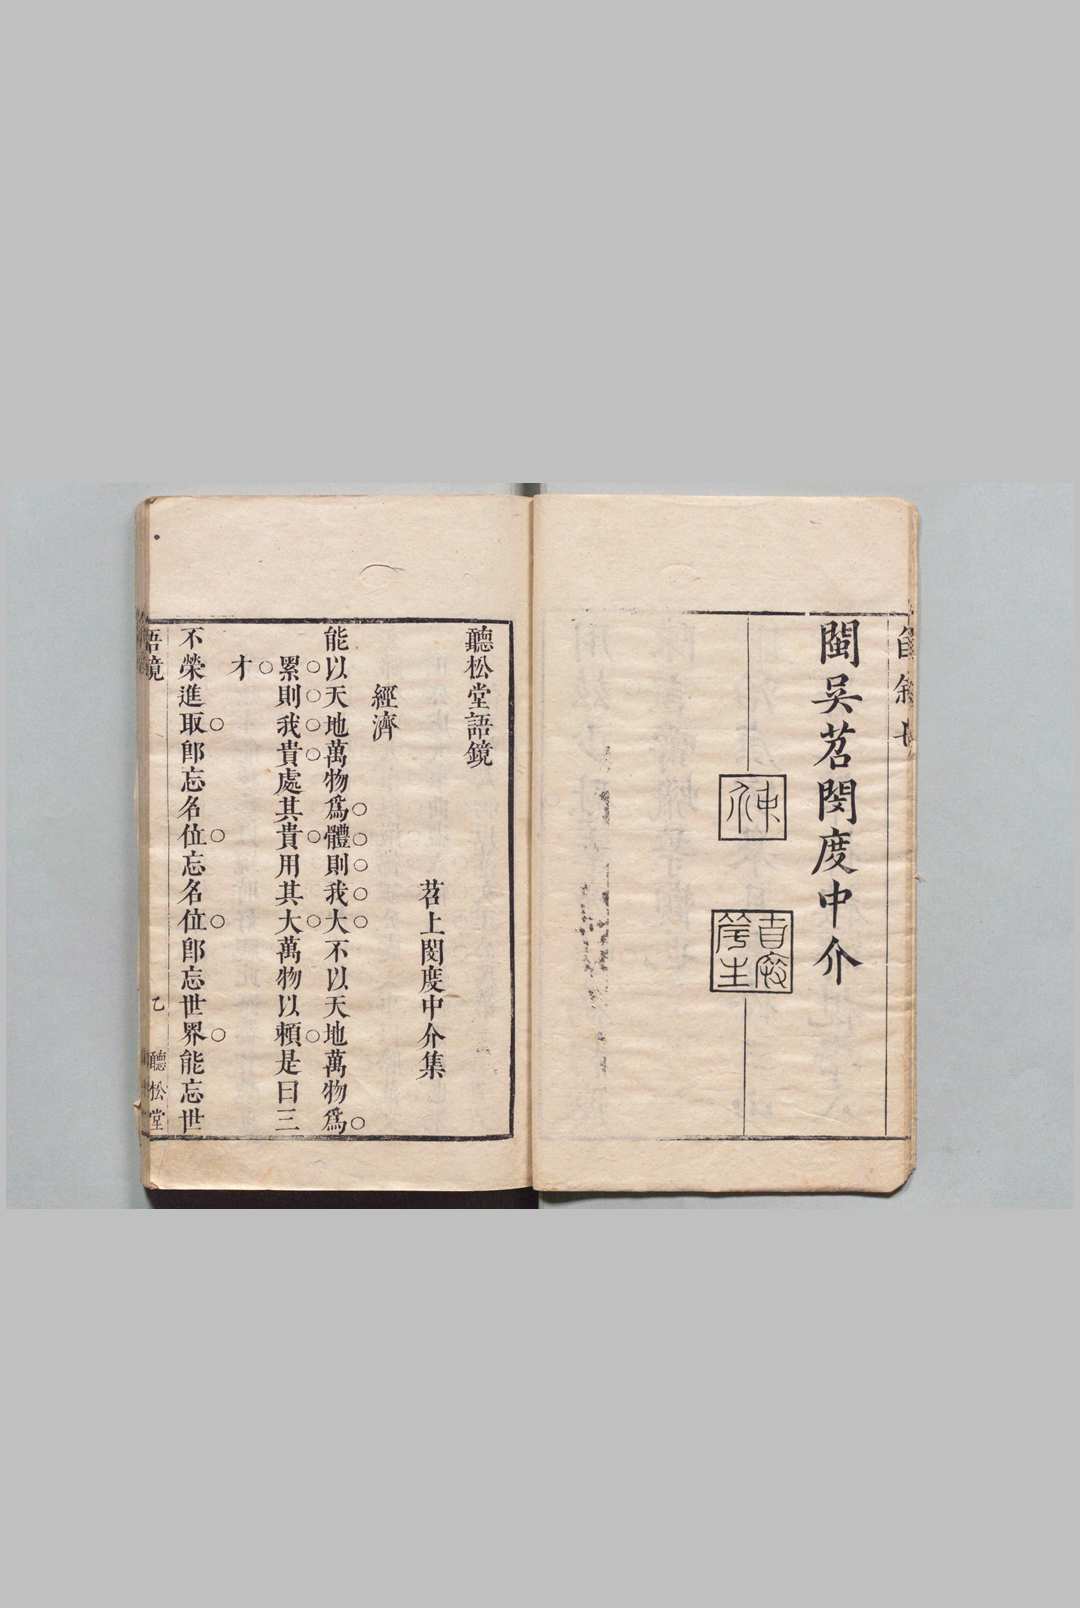 閩吳苕閔度中介
仲
聽松堂語鏡
苕上閔度中介集
經濟
能以天地萬物爲體則我大不以天地萬物爲
累則我貴處其貴用其大萬物以賴是曰三
才
不榮進取卽忘名位忘名位卽忘世界能忘世
語鏡 乙 聽松堂